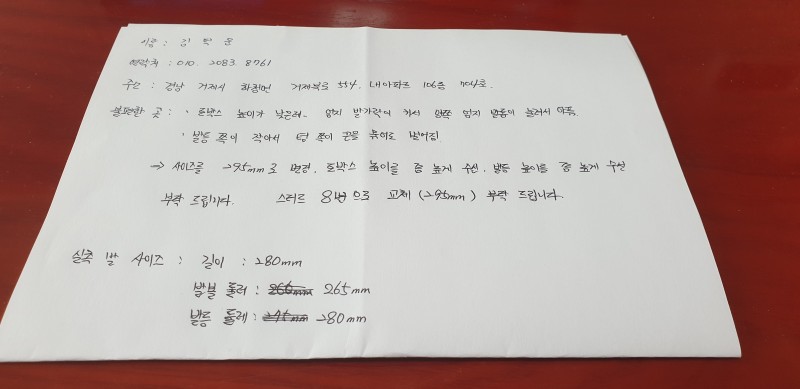 이름 : 김 턱 윤
연락처 : 010. 2083 8761
주소 : 경남 거제시 하청면 거제북로 554, 106동 704호.
불편한 곳 : · 토박스 높이가 낮은려. 엄지 발가락이 양쪽 엄지 발톱이 눌려서 아픔.
· 발등 쪽이 작아서 텅 쪽이 끈을 묶어도 벌어짐.
→ 사이즈를 295mm로 변경, 토박스 높이를 좀 높게 수선, 발등 높이를 좀 높게 수선
부탁 드립니다. 스터드 8번으로 교체 (295mm) 부탁 드립니다.
실측 발 사이즈 : 길이 : 280mm
발볼 둘레 : 265mm
발등 둘레 : 280mm